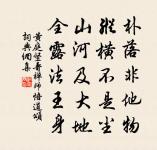 朴落非他物
縱橫不是塵
山河及大地
全露法王身
黃庭堅壽禪師悟道頌
詞典網集